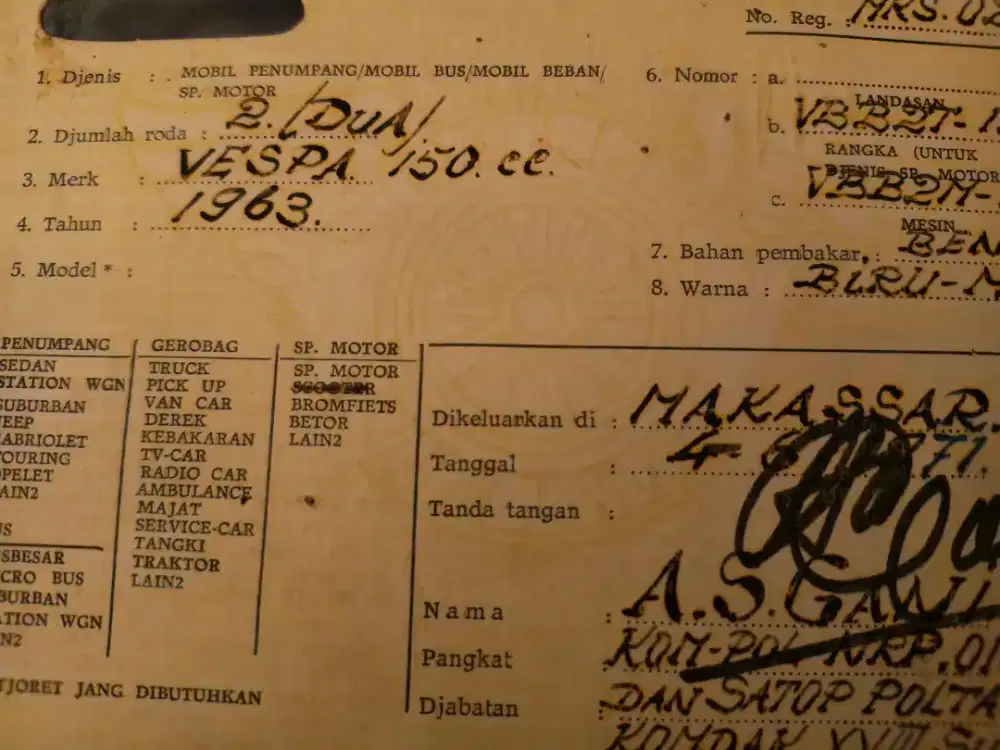 No. Reg. : MRS. 02
1. Djenis : . MOBIL PENUMPANG/MOBIL BUS/MOBIL BEBAN/
SP. MOTOR
2. Djumlah roda : 2. (DUA).
3. Merk : VESPA. 150. cc.
4. Tahun : 1963.
5. Model * :
6. Nomor : a.
LANDASAN
b. VBB2T-1
RANGKA (UNTUK
DJENIS SP. MOTOR
c. VBB2M-
MESIN
7. Bahan pembakar, : BEN
8. Warna : BIRU-M
PENUMPANG
SEDAN
STATION WGN
SUBURBAN
JEEP
CABRIOLET
TOURING
OPELET
LAIN2
US
SBESAR
CRO BUS
BURBAN
TATION WGN
IN2
GEROBAG
TRUCK
PICK UP
VAN CAR
DEREK
KEBAKARAN
TV-CAR
RADIO CAR
AMBULANCE
MAJAT
SERVICE-CAR
TANGKI
TRAKTOR
LAIN2
SP. MOTOR
SP. MOTOR
SCOOTER
BROMFIETS
BETOR
LAIN2
TJORET JANG DIBUTUHKAN
Dikeluarkan di : MAKASSAR.
Tanggal : 4- 71.
Tanda tangan :
Nama : A.S.GANI
Pangkat : KOM-POL NRP. 01
Djabatan : DAN SATOP POLTA
KOMDAK XVIII